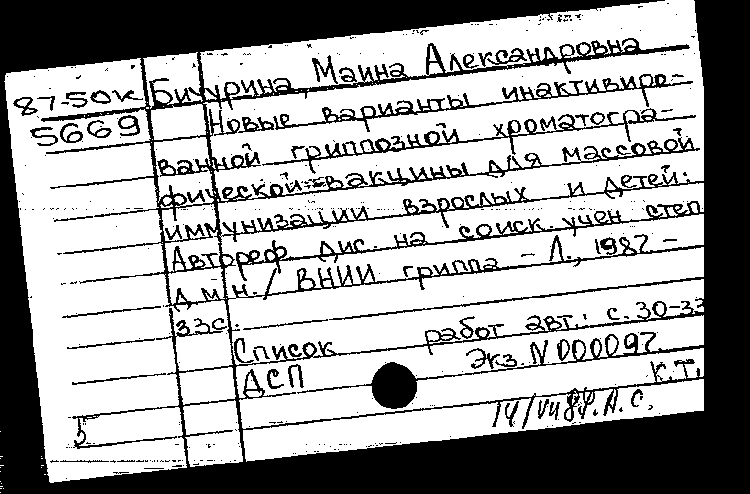 87-50к
5669
Бичурина, Маина Александровна
Новые варианты инактивиро-
ванной гриппозной хроматогра-
фической вакцины для массовой
иммунизации взрослых и детей:
Автореф. дис. на соиск. учен степ
д.м.н./ ВНИИ гриппа - Л., 1987 -
33с.
Список работ авт.: с. 30-33
ДСП Экз. N 000097.
К.Т.
5
А.С.